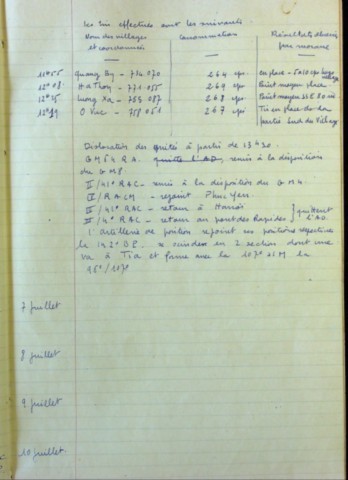 Les tirs effectués sont les suivants
Nom des villages Consommation Résultats obtenus
et coordonnées par mesure
11h55 Quang By - 734 070 264 cps en place
12h08 Ha Thon - 771 055 269 cps Point moyen place
12h25 Luong Xa - 755 087 268 cps Point moyen
12h49 O Vuc - 758 051 267 cps Tir en place
partie sud du village
Dislocation des unités à partir de 13h30
GM 54 R.A. remis à la disposition
du GM8
II/41° RAC - remis à la disposition du GM4
IV/RACM - rejoint Phu Yen
II/41° RAC - retour à Hanoi quittent
II/4° RAC - retour au pont des Rapides
L'artillerie de position rejoint ses positions respectives
la 142° BP. se scinde en 2 sections dont une
va à Tia et forme avec la 107° la
95°/107°
7 juillet
8 juillet
9 juillet
10 juillet